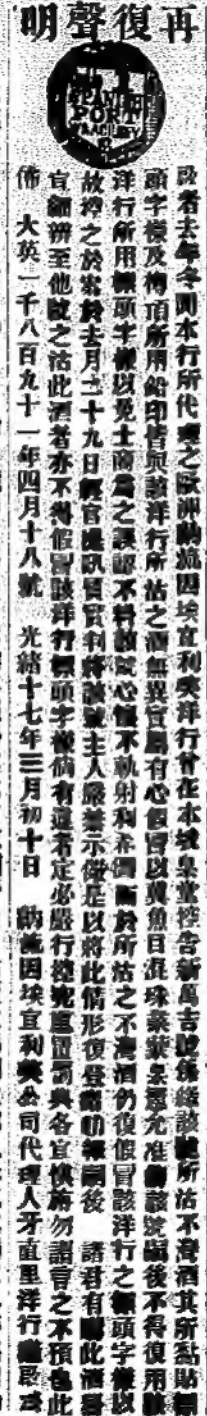 再復聲明
PORT
啟者去年冬間本行所代理之歐洲因埃宜利洋行曾在本坡臬堂控告新萬吉號係緣該號所沽不灣酒其所點貼標
頭字樣及樽頂所用鉛印皆與該洋行所沽之酒無異官屬有心假冒以冀魚目混珠案蒙臬憲允准飭該號嗣後不得復用該
洋行所用標頭字樣以免士商為之誤認不料該號心懷不軌射利於所沽之不灣酒仍復假冒該洋行之標頭字樣以
故控之於案於去月二十九日經官提訊質實將該號主人嚴禁示儆是以將此情形復登諸叻報嗣後 諸君有購此酒務
宜細辨至他號之沽此酒者亦不得假冒該洋行標頭字樣倘有違者定必嚴行控究重罰各宜慎旃勿謂言之不預也此
佈 大英一千八百九十一年四月十八號 光緒十七年三月初十日 因埃宜利公司代理人牙直里洋行謹啟